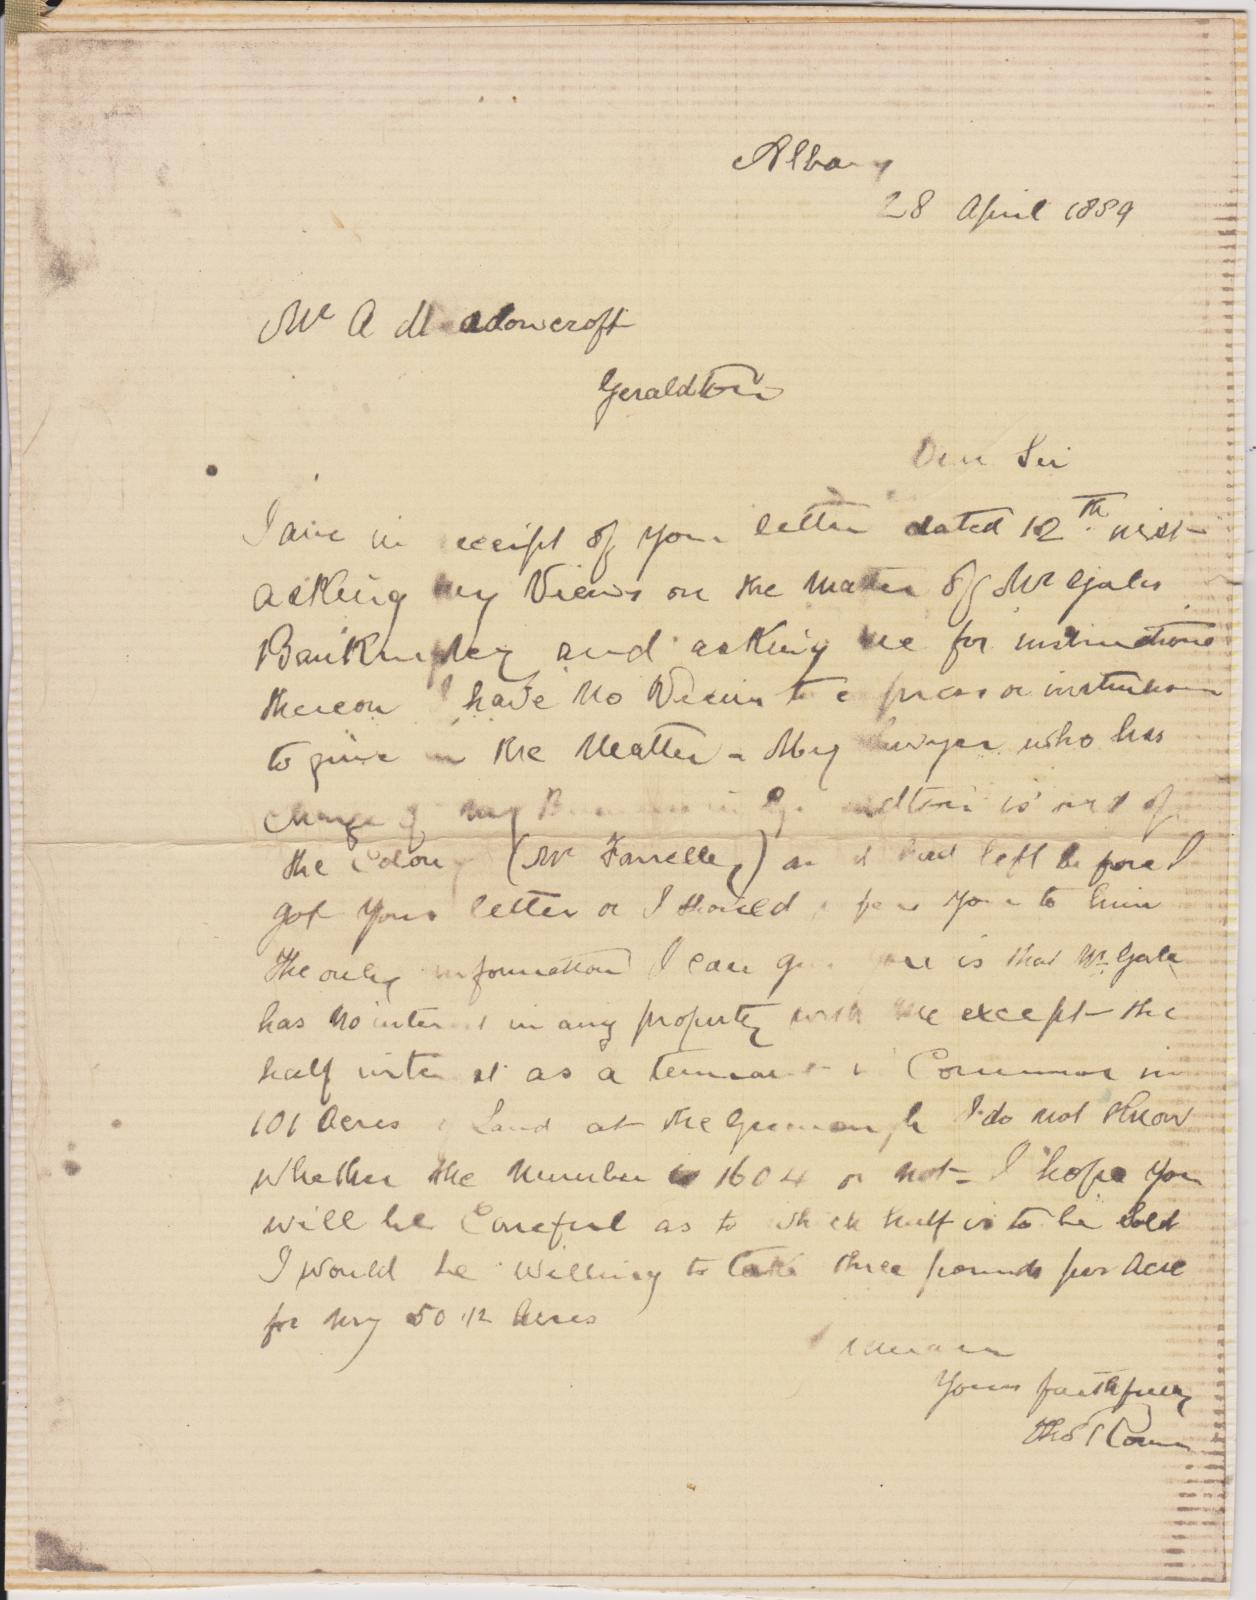 Albany
28 April 1889
Mr A Meadowcroft
Geraldton
Dear Sir
I am in receipt of your letter dated 12th inst
asking my Views on the Matter of Mr Gales
Bankruptcy and asking me for instructions
thereon I have No Views to express or instructions
to give in the Matter - My Lawyer who has
charge of my Business in Geraldton is out of
the Colony (Mr Farrelley) and had left before I
got your letter or I should refer you to him
The only information I can give you is that Mr Gale
has no interest in any property with me except the
half interest as a tennant in Common in
101 Acres of Land at the Greenough I do not Know
Whether the Number is 1604 or not - I hope you
will be Careful as to which half is to be Sold
I would be Willing to take three pounds per Acre
for my 50 1/2 Acres
I remain
Yours faithfully
Thos